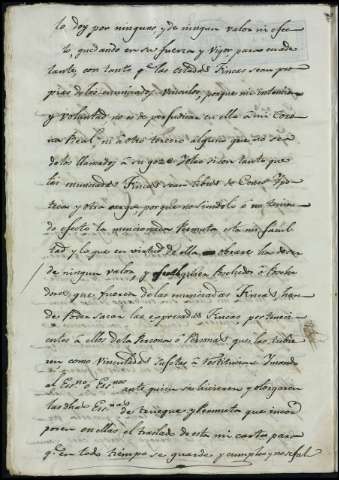 lo doy por ningunas, y de ningun valor ni efec-
to, quedando en su fuerza y vigor para en ade-
lante, con tanto q.e las citadas Fincas sean pro-
pias de los enunciados Vinculos, porque mi intencion
y voluntad no es de perjudicar en ella a mi Coro-
na Real, ni a otro tercero alguno que no sea
de los llamados a su goze
las enunciadas Fincas sean libres de Censo Ypo-
teca y otra carga, porque no siendolo o no tenien-
do efecto la mencionada Permuta esta mi facul-
tad y lo que en virtud de ella obrare han de ser
de ningun valor, y qualquiera Posehedor o Posehe-
dores que fueren de las enunciadas Fincas, han
de poder sacar las expresadas Fincas pertenecien-
tes a ellos de la Persona o Personas que las tubie-
ren como vinculadas sujetas a restitucion Y mando
al Ess.no o Ess.nos ante quien se hicieren y otorgaren
las dhas Ess.ras de trueque y Permuta que incor-
poren en ellas el traslado de esta mi carta para
q.e en todo tiempo se guarde y cumpla y no se fal-